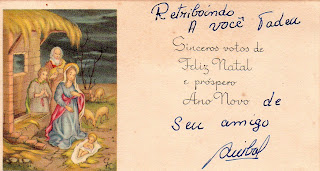 Retribuindo
A você Tadeu
Sinceros votos de
Feliz Natal
e próspero
Ano Novo de
Seu amigo
Anibal